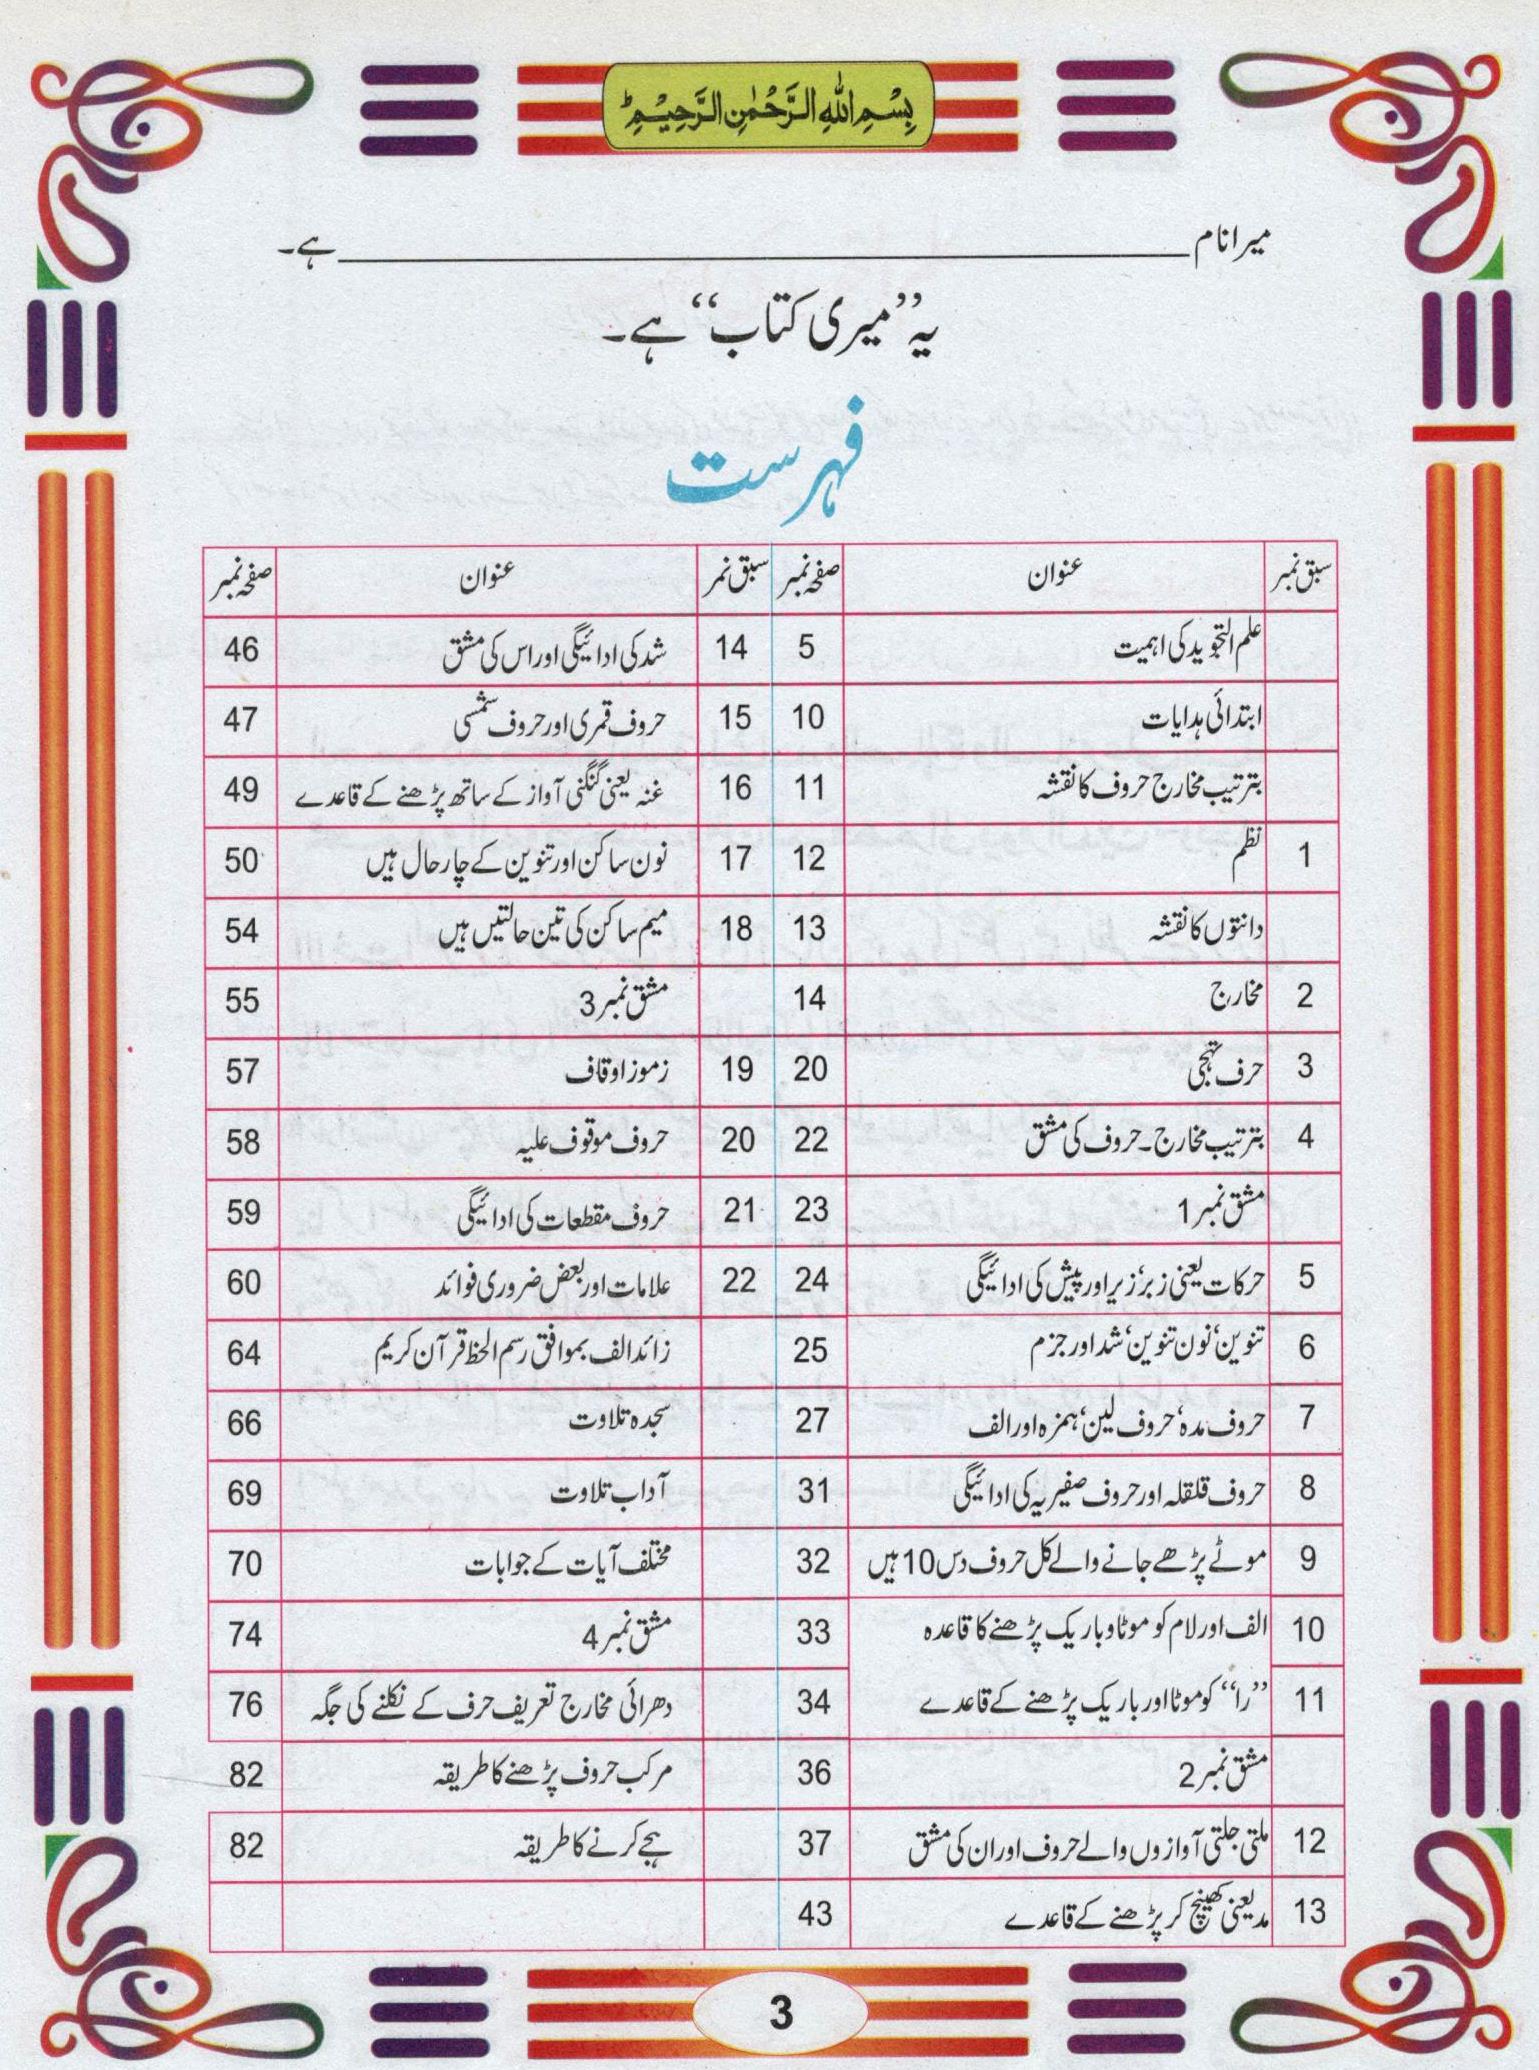 بِسْمِ اللهِ الرَّحْمٰنِ الرَّحِيْمِ ط
میرا نام ________ ہے۔
یہ ”میری کتاب“ ہے۔
فہرست
سبق نمبر عنوان صفحہ نمبر سبق نمر عنوان صفحہ نمبر
علم التجوید کی اہمیت 5 14 شد کی ادائیگی اور اس کی مشق 46
ابتدائی ہدایات 10 15 حروف قمری اور حروف شمسی 47
بترتیب مخارج حروف کا نقشہ 11 16 غنہ یعنی گنگنی آواز کے ساتھ پڑھنے کے قاعدے 49
1 نظم 12 17 نون ساکن اور تنوین کے چار حال ہیں 50
دانتوں کا نقشہ 13 18 میم ساکن کی تین حالتیں ہیں 54
2 مخارج 14 مشق نمبر 3 55
3 حرف تہجی 20 19 زموز اوقاف 57
4 بترتیب مخارج۔ حروف کی مشق 22 20 حروف موقوف علیہ 58
مشق نمبر 1 23 21 حروف مقطعات کی ادائیگی 59
5 حرکات یعنی زبر، زیر اور پیش کی ادائیگی 24 22 علامات اور بعض ضروری فوائد 60
6 تنوین، نون تنوین، شد اور جزم 25 زائد الف بموافق رسم الخط قرآن کریم 64
7 حروف مدہ، حروف لین، ہمزہ اور الف 27 سجدہ تلاوت 66
8 حروف قلقلہ اور حروف صفیریہ کی ادائیگی 31 آداب تلاوت 69
9 موٹے پڑھے جانے والے کل حروف دس 10 ہیں 32 مختلف آیات کے جوابات 70
10 الف اور لام کو موٹا و باریک پڑھنے کا قاعدہ 33 مشق نمبر 4 74
11 ”را“ کو موٹا اور باریک پڑھنے کے قاعدے 34 دھرائی مخارج تعریف حرف کے نکلنے کی جگہ 76
مشق نمبر 2 36 مرکب حروف پڑھنے کا طریقہ 82
12 ملتی جلتی آوازوں والے حروف اور ان کی مشق 37 ہجے کرنے کا طریقہ 82
13 مد یعنی کھینچ کر پڑھنے کے قاعدے 43
3